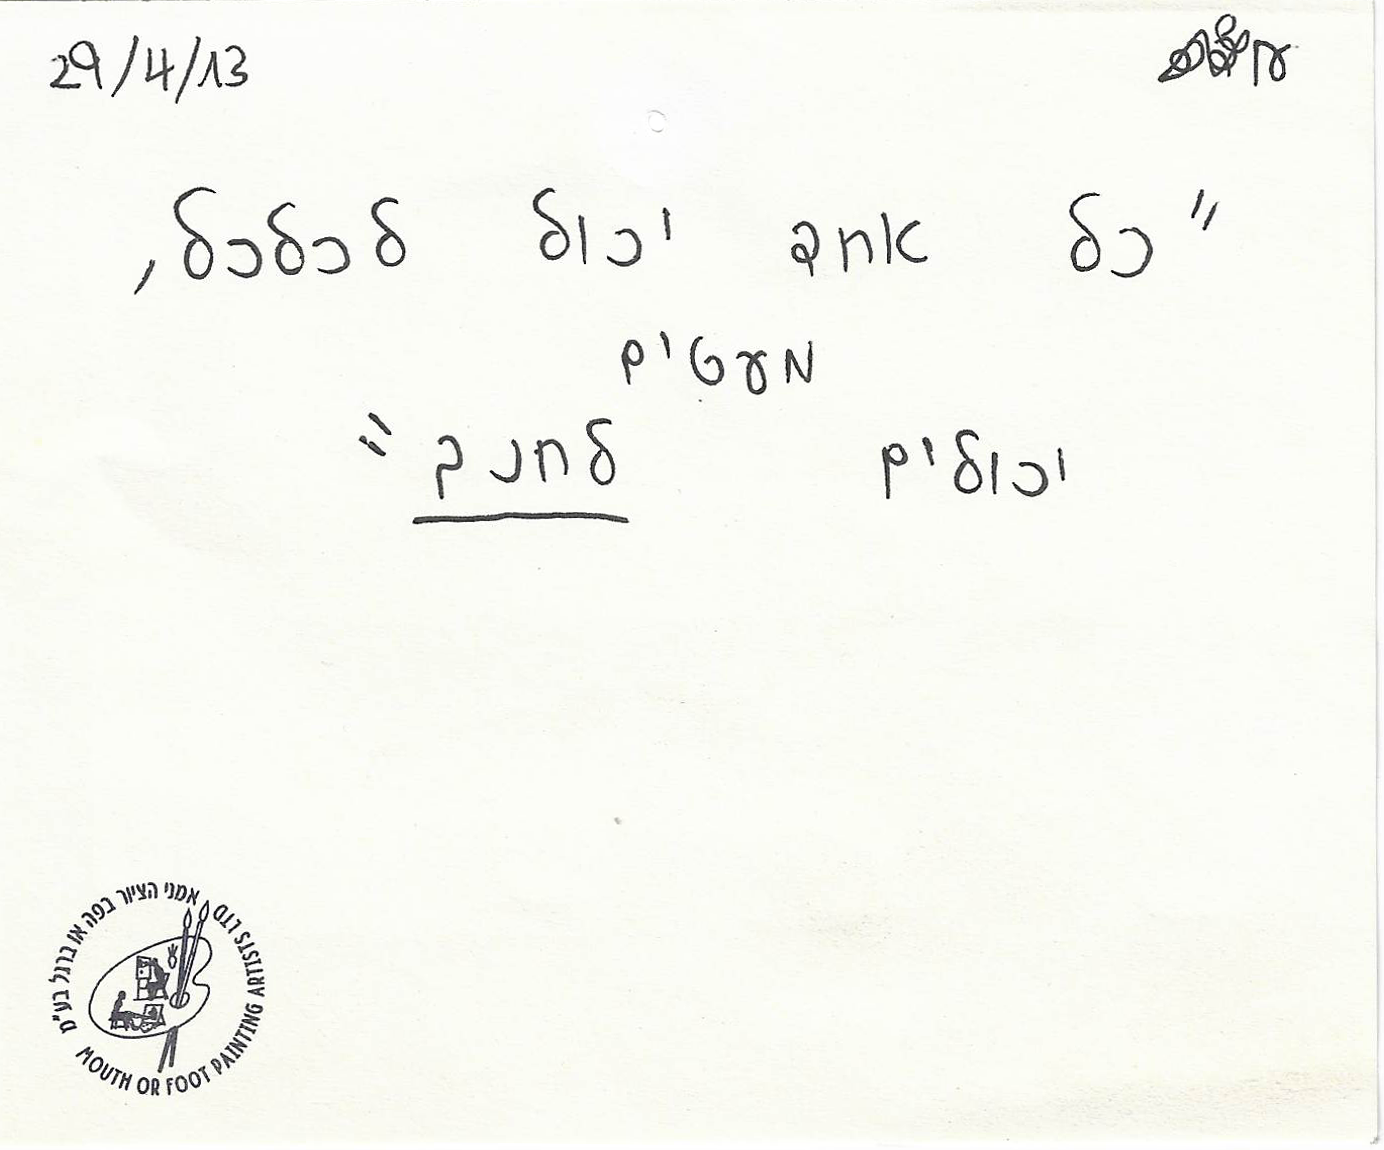 29/4/13
"כל אחד יכול לכלכל,
מעטים
יכולים לחנך"
אמני הציור בפה או ברגל בע"מ
MOUTH OR FOOT PAINTING ARTISTS LTD